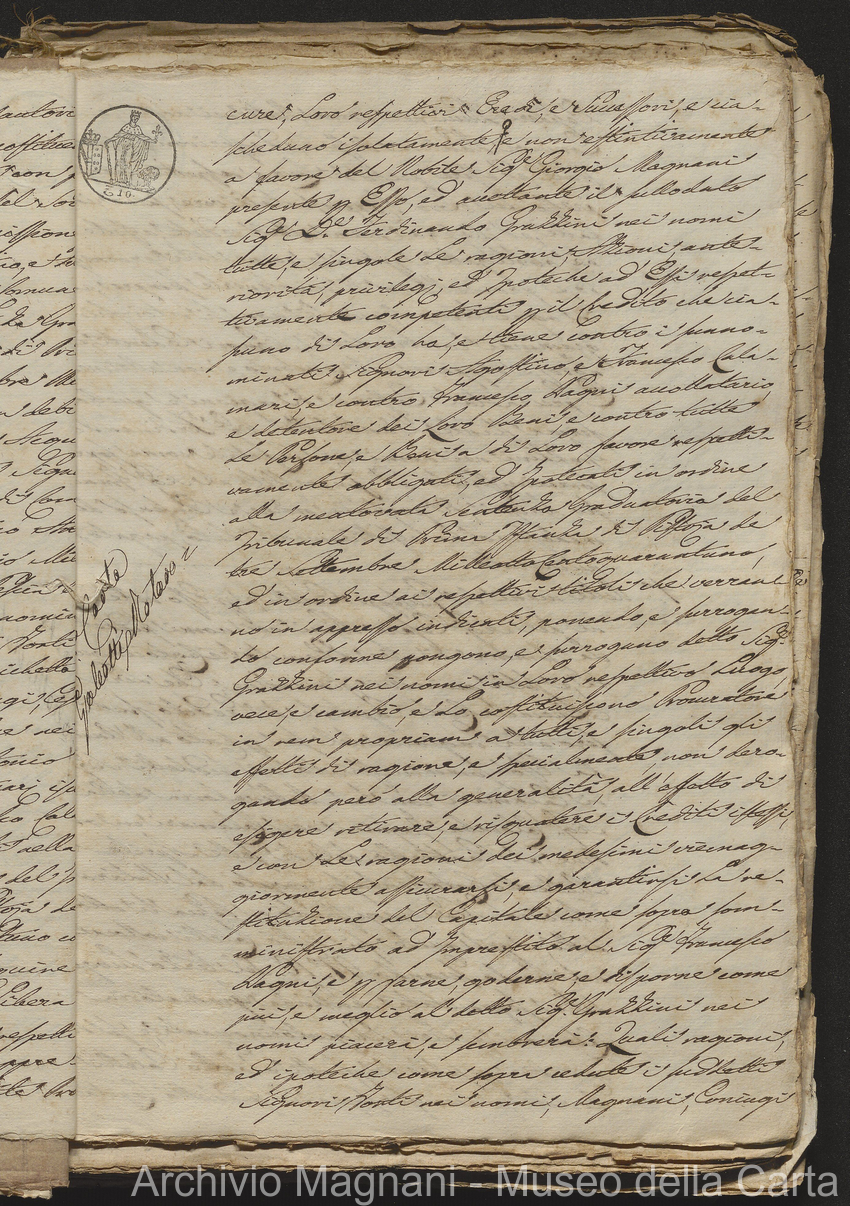 cure, Loro respettivi Eredi, e Successori, e cia-
scheduno isolatamente e non estintivamente
a favore del Nobile Sig.e Giorgio Magnani
presente p Esso, ed accettante il sullodato
Sig.e D.e Ferdinando Grazzini nei nomi
tutte, e singole le ragioni, Azioni ante-
riorità, privilegj, ed Ipoteche ad Essi respet-
tivamente competenti p il Credito che cia-
scuno di Loro ha, e tiene contro i sunno-
minati Signori Agostino, e Francesco Cala-
mari, e contro Francesco Pagni accollatario
e detentore dei Loro Beni, e contro tutte
le Persone, e Beni a di Loro favore respetti-
vamente obbligati, ed Ipotecati in ordine
alla mentovata Sentenza Graduatoria del
Tribunale di Prima Istanza di Pistoja de
tre Settembre Milleotto Centoquarantuno,
ed in ordine ai respettivi titoli che verran-
no in appresso indicati, ponendo, e surrogan-
do conforme pongono, e surrogano detto Sig.e
Grazzini nei nomi in Loro respettivo Luogo
vece, e cambio, e Lo costituiscono Procuratore
in rem propriam a tutti, e singoli gli
effetti di ragione, e specialmente, non dero-
gando però alla generalità, all'effetto di
esigere ritirare, e risquotere i Crediti istessi,
e con Le ragioni dei medesimi viemag-
giormente assicurarsi, e garantirsi La re-
stituzione del Capitale come sopra som-
ministrato ad Imprestito al Sig.e Francesco
Pagni, e p farne, goderne, e disporne come
più, e meglio al detto Sig.e Grazzini nei
nomi piacerà, e sembrerà. Quali ragioni,
ed ipoteche come sopra cedute i suddetti
Signori Nonti nei nomi, Magnani, Coniugi
Costa
Galeotti Notaro
C. 10.
Archivio Magnani - Museo della Carta